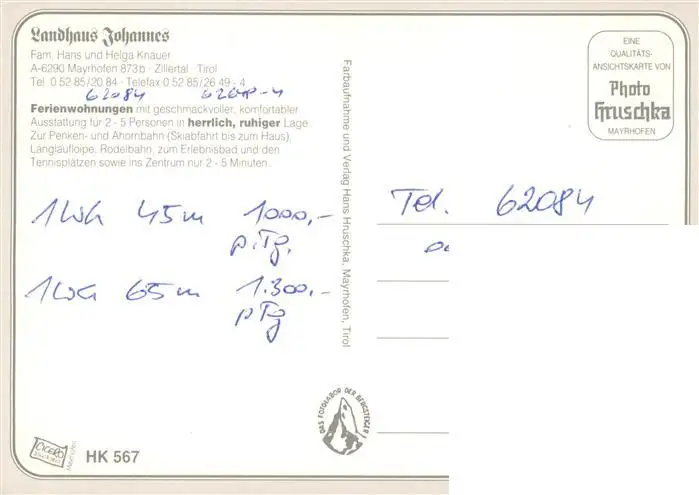 Landhaus Johannes
Fam. Hans und Helga Knauer
A-6290 Mayrhofen 873b · Zillertal · Tirol
Tel. 0 52 85/20 84 · Telefax 0 52 85/26 49 - 4
62084
Ferienwohnungen mit geschmackvoller, komfortabler
Ausstattung für 2 - 5 Personen in herrlich, ruhiger Lage.
Zur Penken- und Ahornbahn (Skiabfahrt bis zum Haus),
Langlaufloipe, Rodelbahn, zum Erlebnisbad und den
Tennisplätzen sowie ins Zentrum nur 2 - 5 Minuten.
1 Wh 45 m 1000,-
p. Tg.
1 Wh 65 m 1.300,-
p Tg
HK 567
Farbaufnahme und Verlag Hans Hruschka, Mayrhofen, Tirol
DAS FOTOLABOR DER BERGSTEIGER!
EINE
QUALITÄTS-
ANSICHTSKARTE VON
Photo
Hruschka
MAYRHOFEN
Tel. 62084